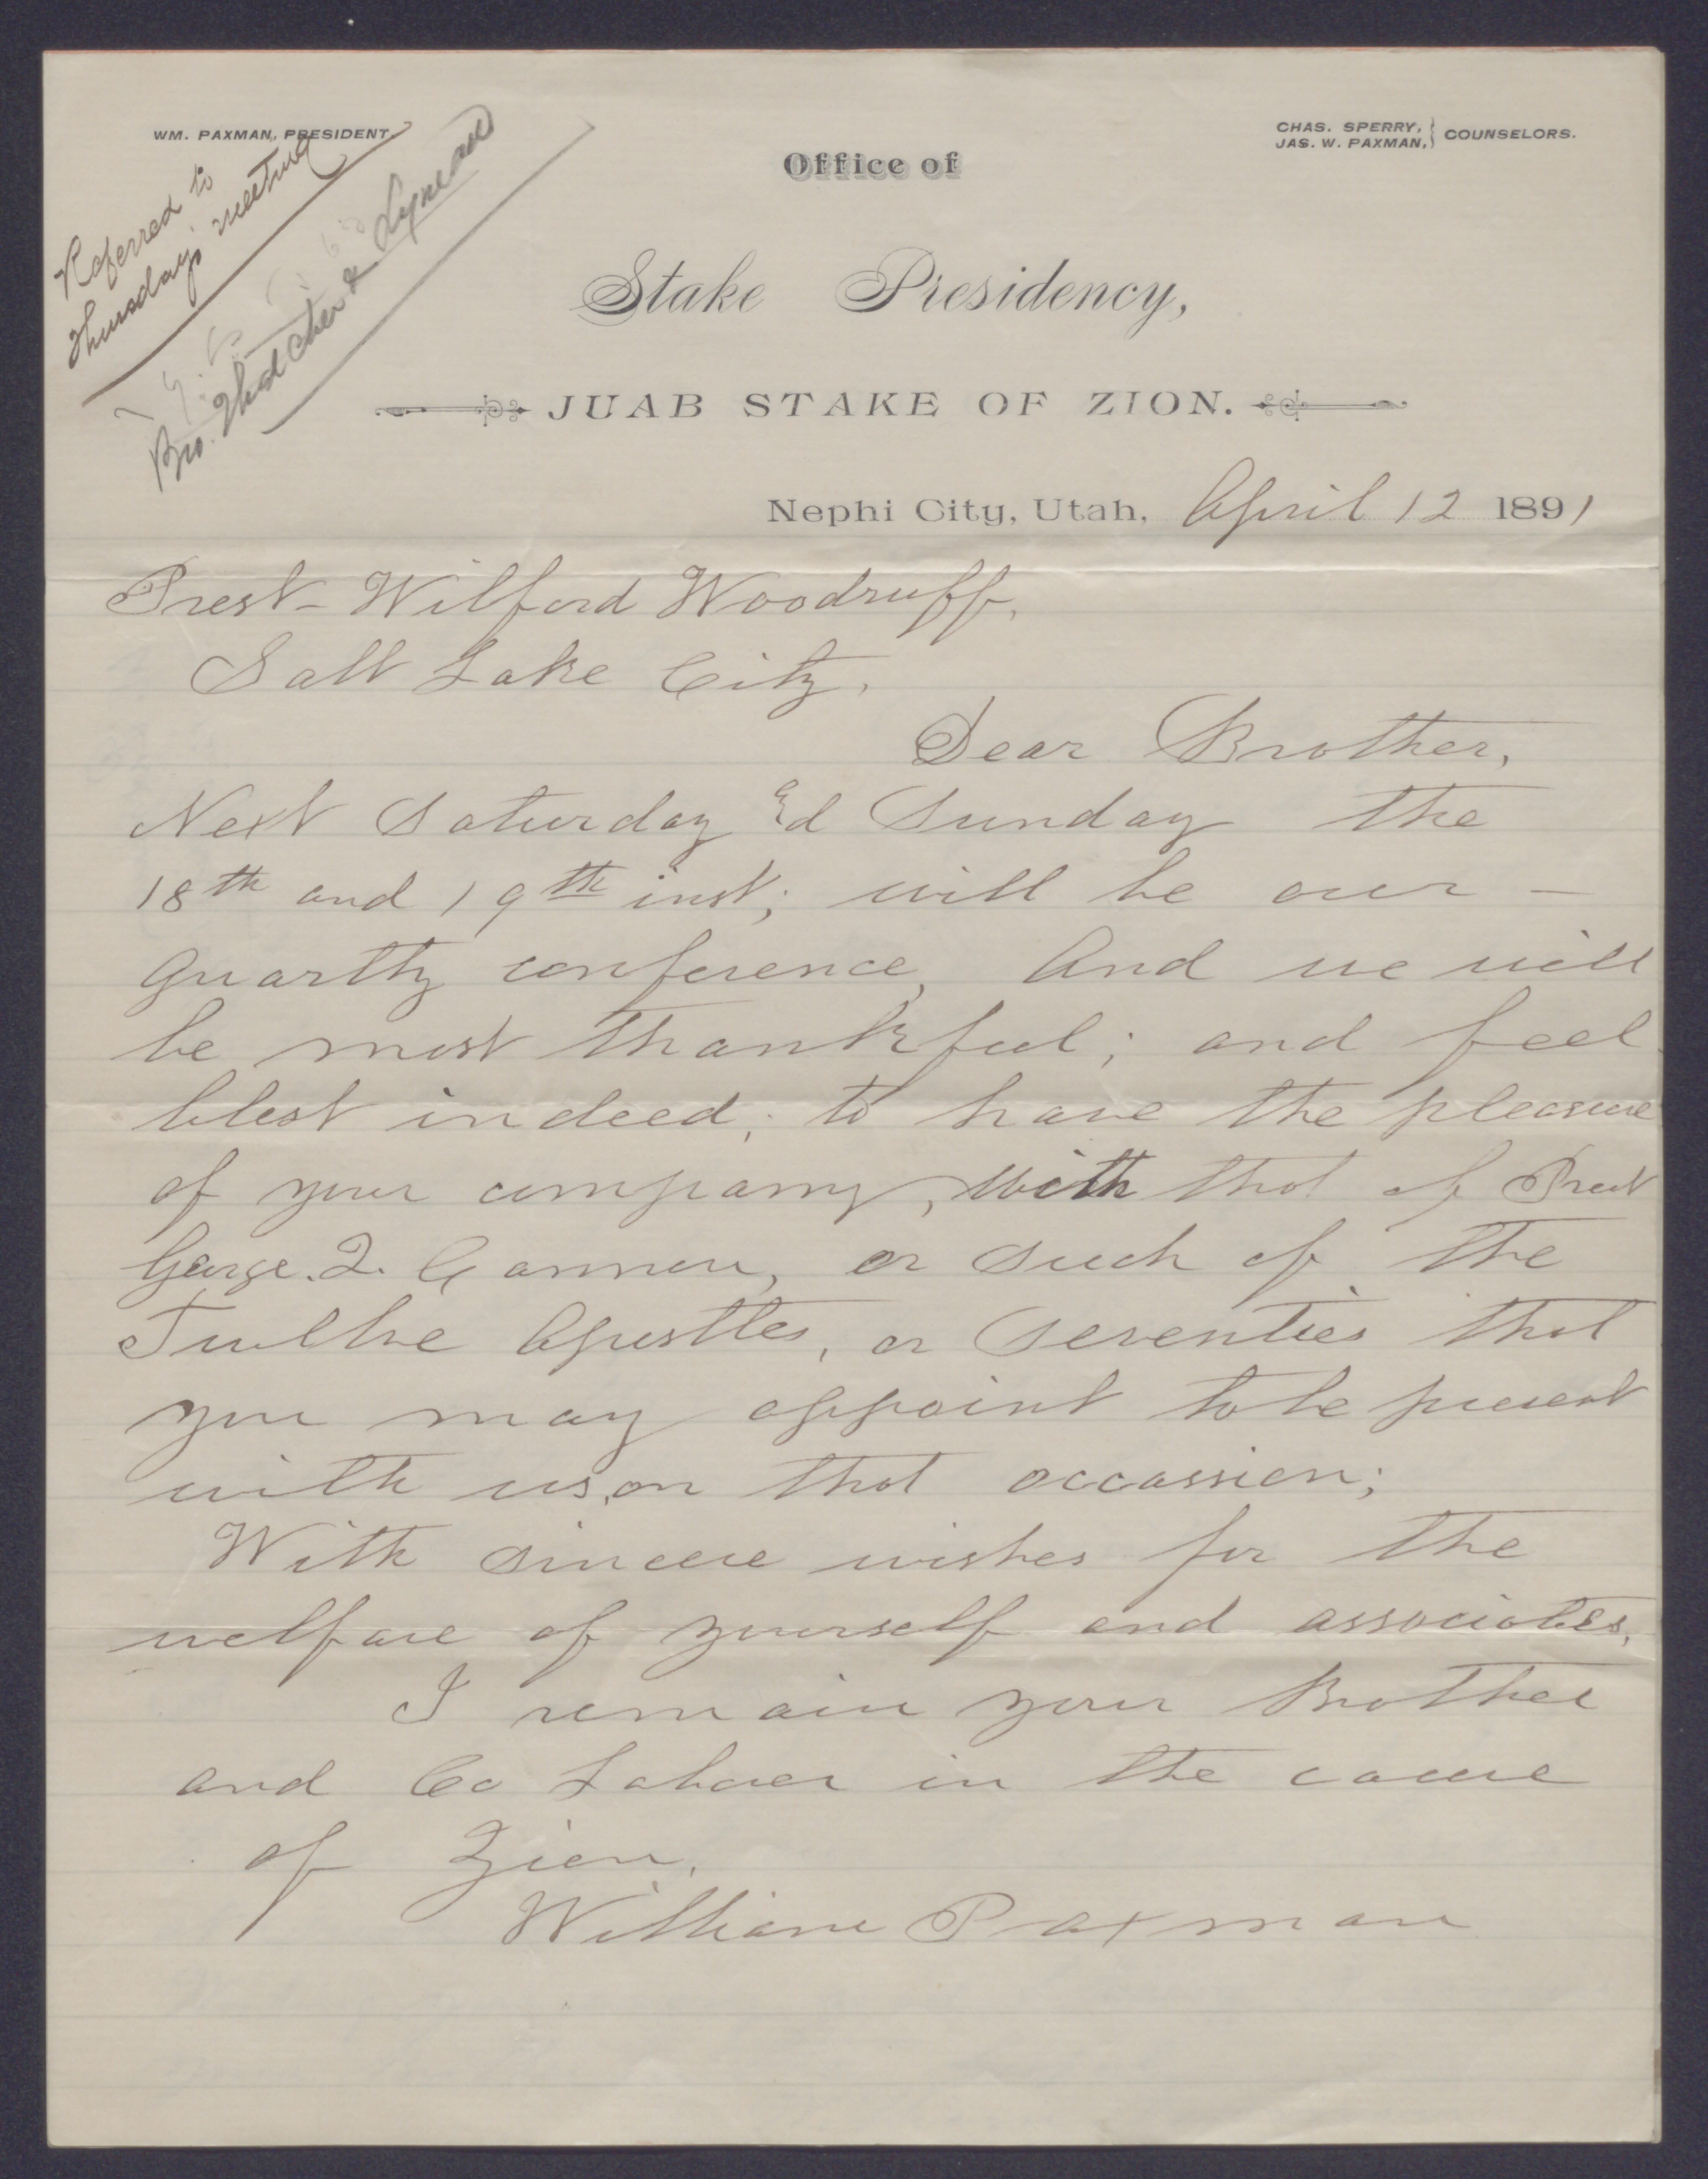 WM. PAXMAN, PRESIDENT.
CHAS. SPERRY,
JAS. W. PAXMAN,
COUNSELORS.
Referred to
Thursday's meeting
Bro. Thatcher & Lyman
Office of
Stake Presidency,
JUAB STAKE OF ZION.
Nephi City, Utah, April 12 1891
Prest- Wilford Woodruff,
Salt Lake City,
Dear Brother,
Next Saturday &d Sunday the
18th and 19th inst; will be our -
quartly conference, And we will
be most thankful; and feel
blest indeed; to have the pleasure
of your company, with that of Prest
George. Q. Cannon, or such of the
Twelve Apostles, or Seventies that
you may appoint to be present
with us, on that occassion;
With sincere wishes for the
welfare of yourself and associates,
I remain your Brother
and Co Laborer in the cause
of Zion,
William Paxman